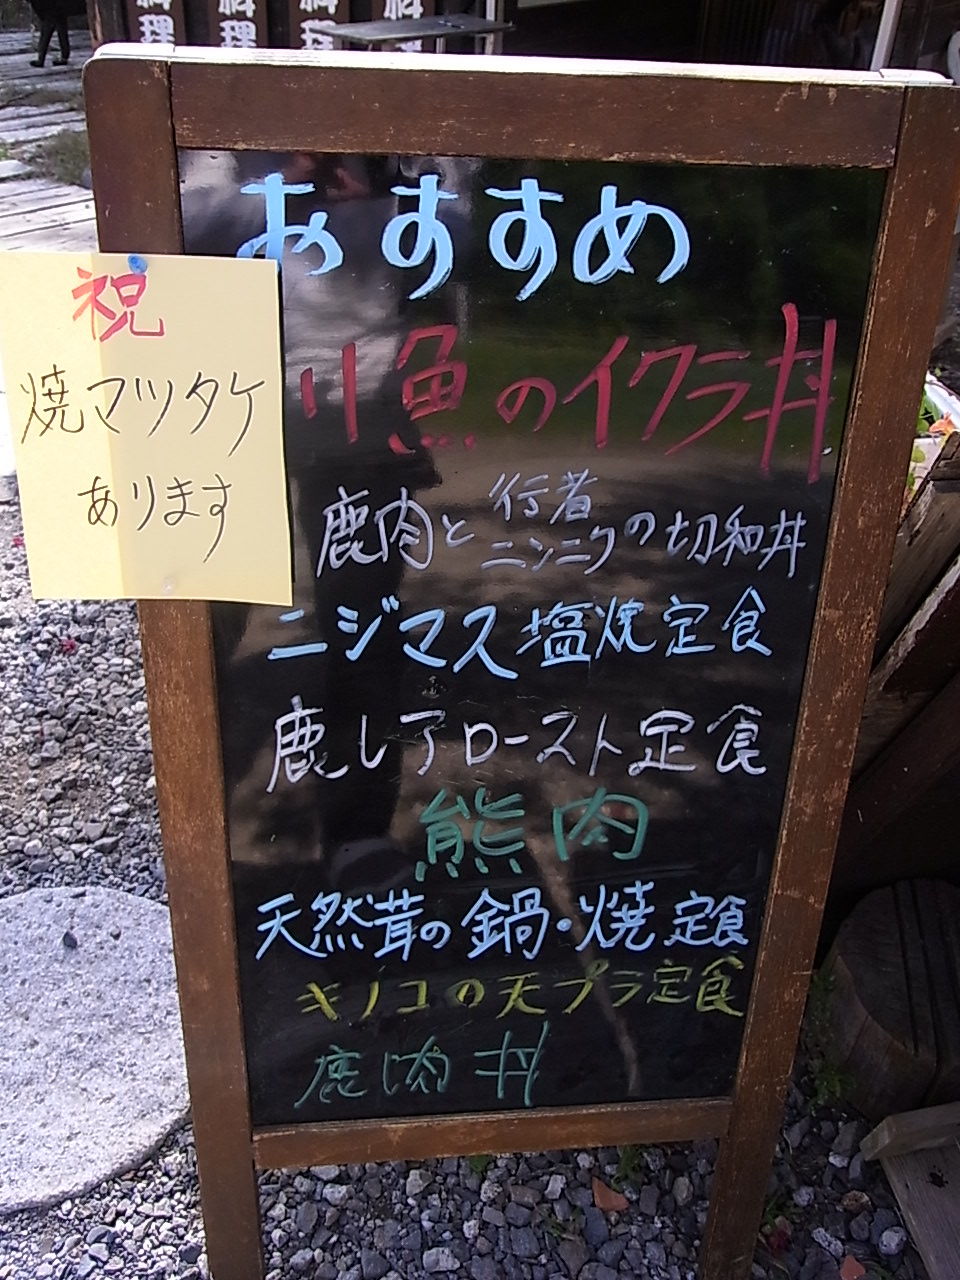 料理
料理
料理
料理
おすすめ
祝
焼マツタケ
あります
川魚のイクラ丼
鹿肉と行者ニンニクの切和丼
ニジマス塩焼定食
鹿レアロースト定食
熊肉
天然茸の鍋・焼定食
キノコの天プラ定食
鹿肉丼